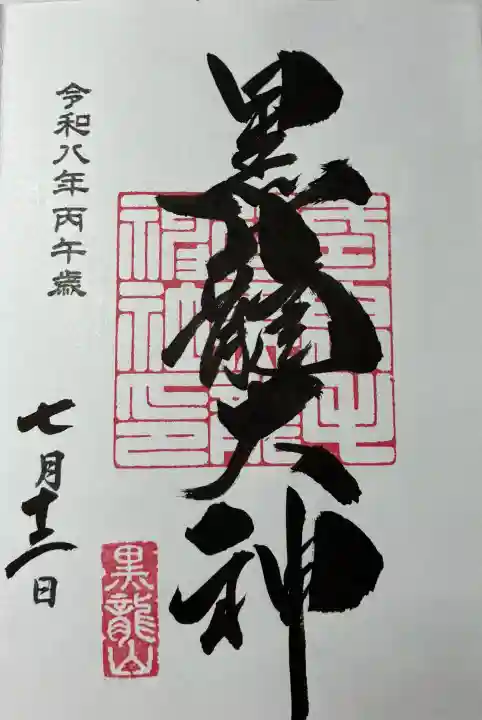 黒八龍大神
令和八年丙午歳
七月十二日
黒龍山